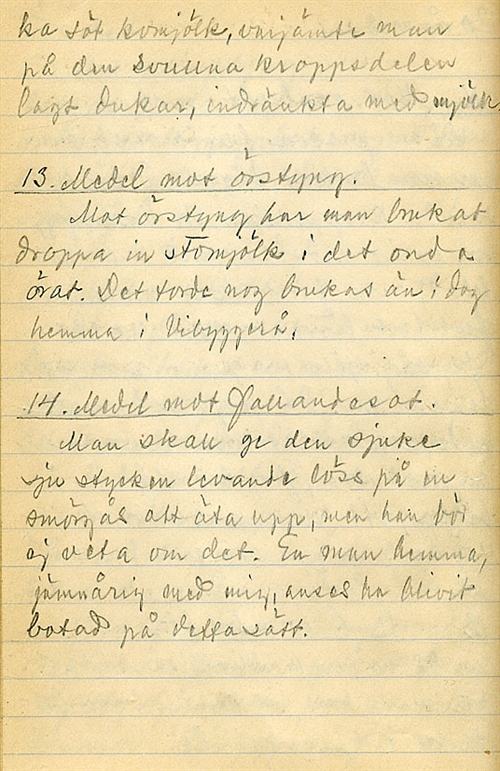 ka söt komjölk, varjämte man
på den svullna kroppsdelen
lagt dukar, indränkta med mjölk
13. Medel mot örstyng.
Mot örstyng har man brukat
droppa in stomjölk i det onda
örat. Det torde nog brukas än i dag
hemma i Vibyggerå.
14. Medel mot fallandesot.
Man skall ge den sjuke
sju stycken levande löss på en
smörgås att äta upp, men han bör
ej veta om det. En man hemma,
jämnårig med mig, anses ha blivit
botad på detta sätt.